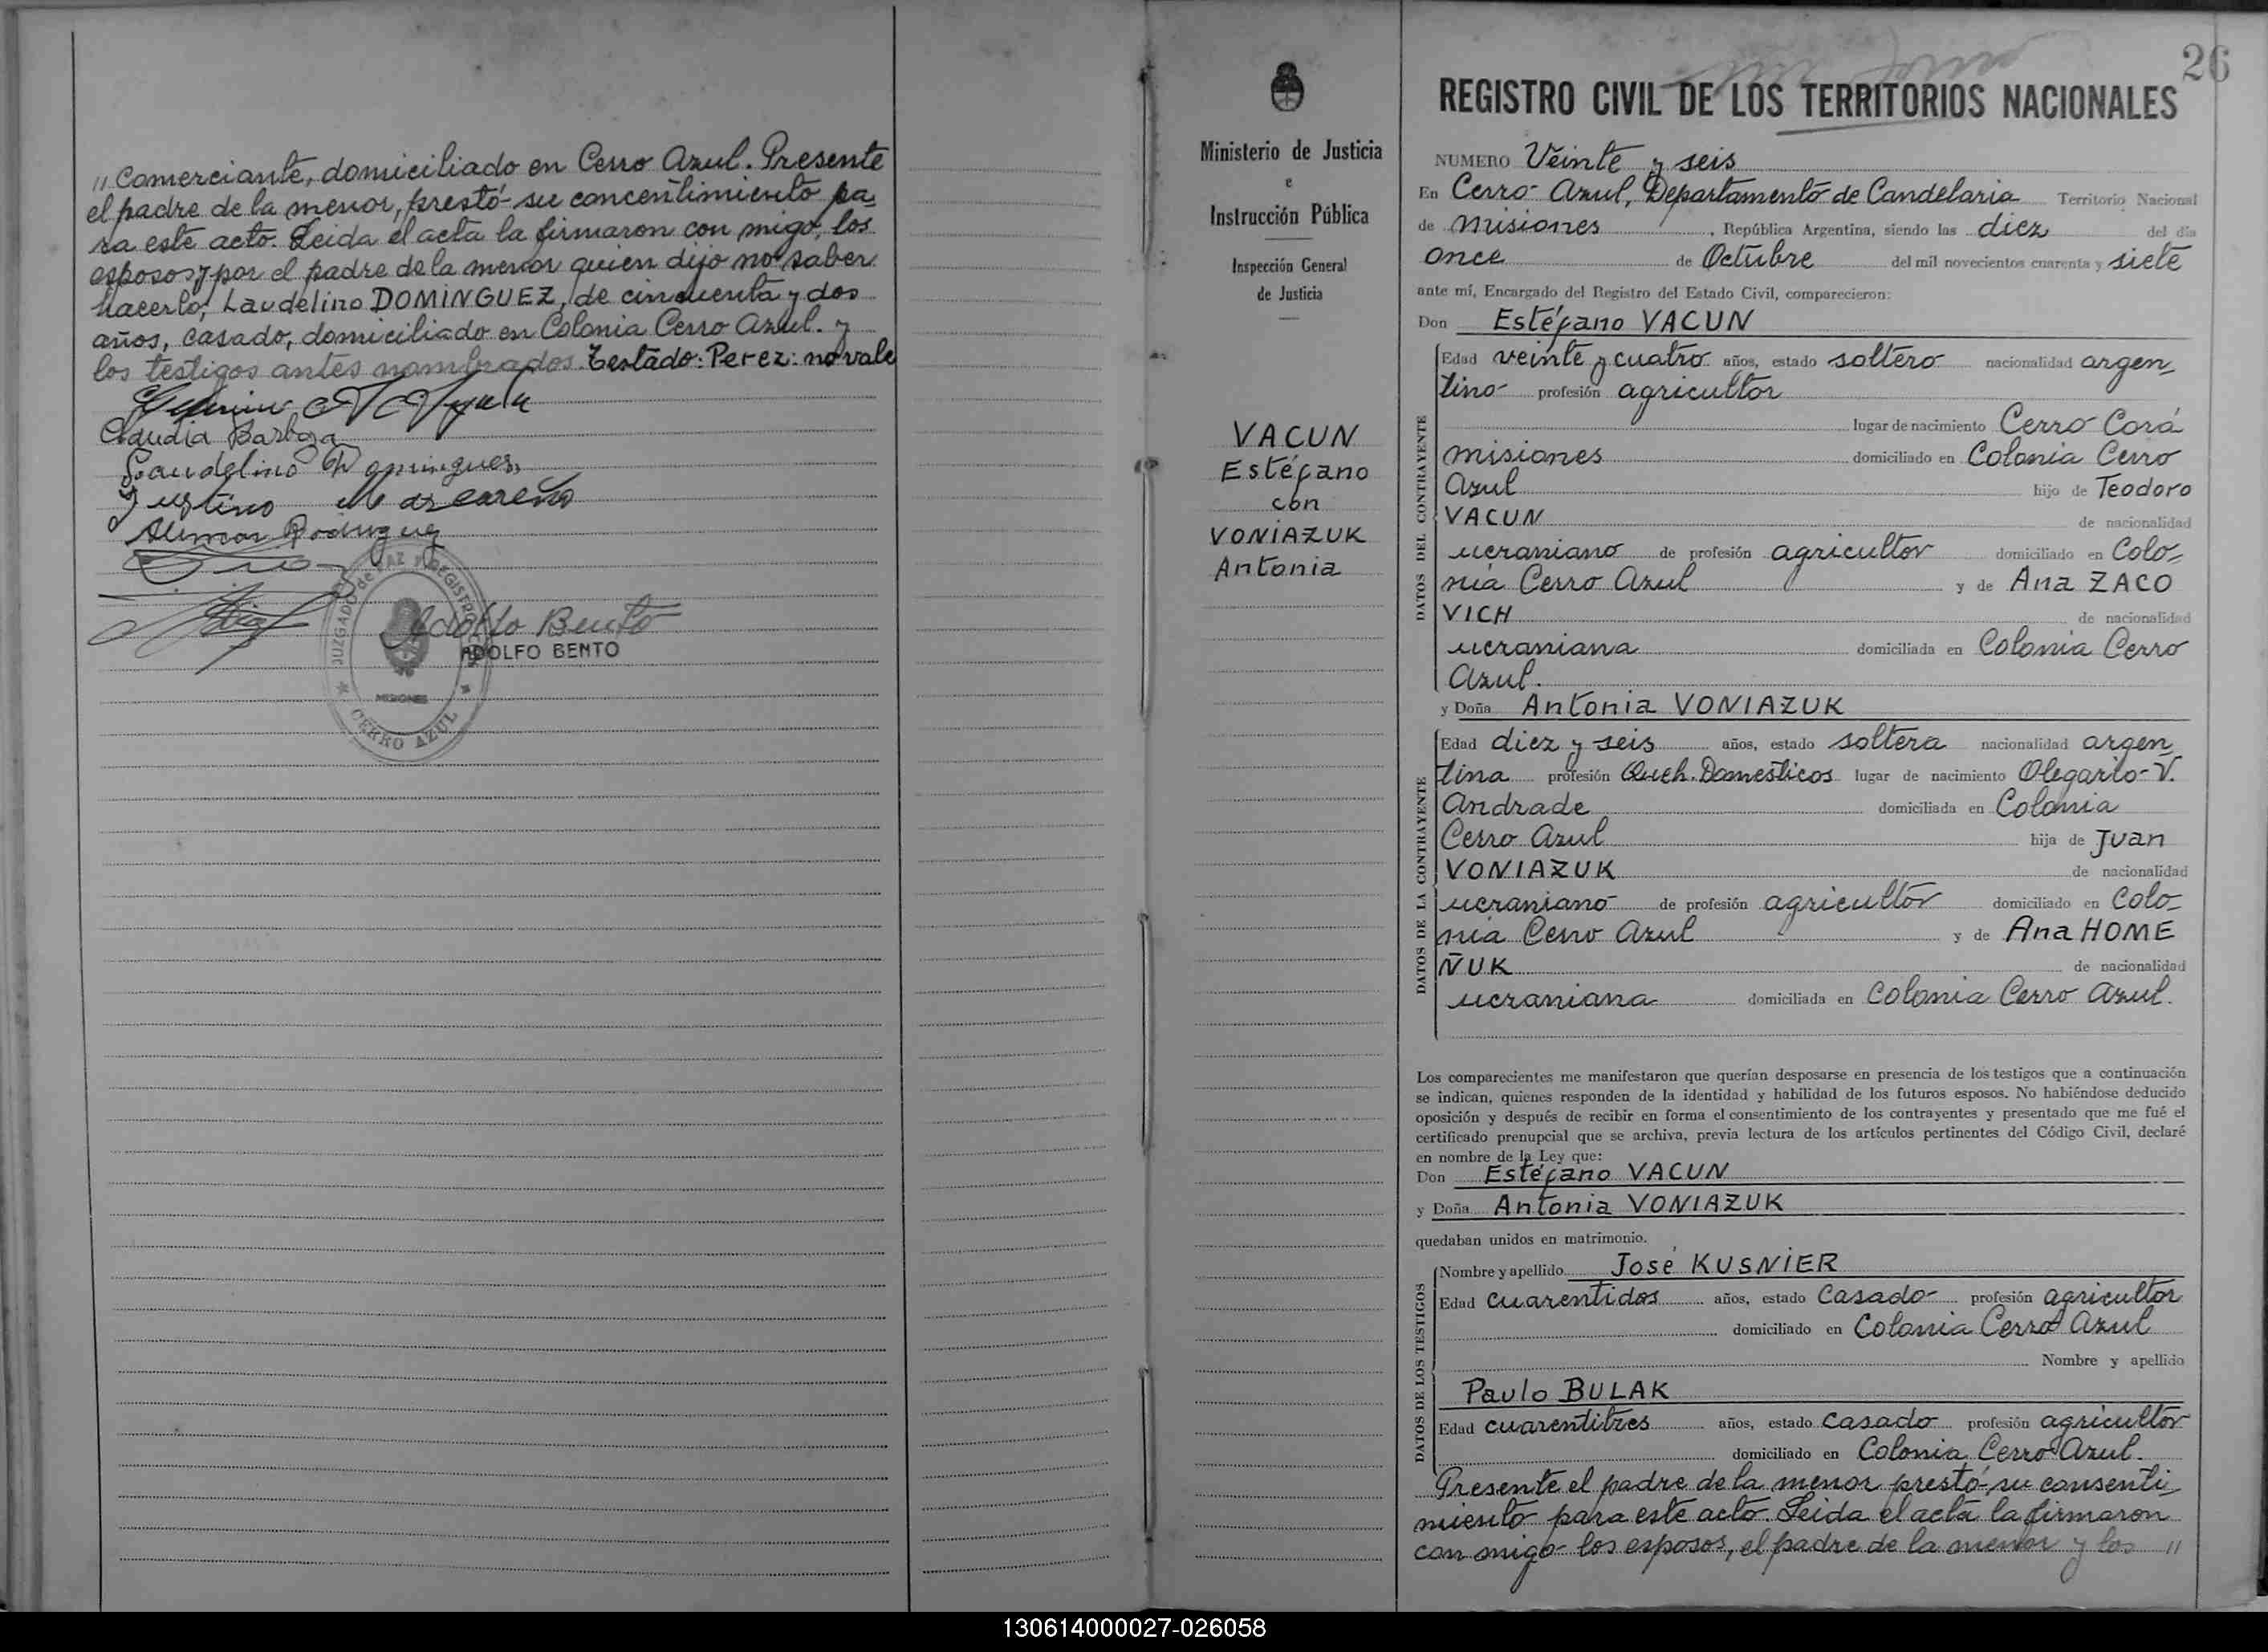 " Comerciante, domiciliado en Cerro Azul. Presente
el padre de la menor, prestó su concentimiento pa=
ra este acto. Leida el acta la firmaron con migo, los
esposos y por el padre de la menor quien dijo no saber
hacerlo, Laudelino DOMINGUEZ, de cincuenta y dos
años, casado, domiciliado en Colonia Cerro Azul. y
los testigos antes nombrados. Testado: Perez: no vale
Claudia Barboza
Laudelino Domingues
Justino
Rodriguez
JUZGADO de PAZ Y REGISTRO CIVIL
MISIONES
CERRO AZUL
Adolfo Bento
ADOLFO BENTO
Ministerio de Justicia
e
Instrucción Pública
Inspección General
de Justicia
VACUN
Estéfano
con
VONIAZUK
Antonia
26
REGISTRO CIVIL DE LOS TERRITORIOS NACIONALES
NUMERO Veinte y seis
En Cerro Azul, Departamento de Candelaria Territorio Nacional
de Misiones, República Argentina, siendo las diez del día
once de Octubre del mil novecientos cuarenta y siete
ante mí, Encargado del Registro del Estado Civil, comparecieron:
Don Estéfano VACUN
DATOS DEL CONTRAYENTE
Edad veinte y cuatro años, estado soltero nacionalidad argen=
tino profesión agricultor
lugar de nacimiento Cerro Corá
misiones domiciliado en Colonia Cerro
Azul hijo de Teodoro
VACUN de nacionalidad
ucraniano de profesión agricultor domiciliado en Colo=
nia Cerro Azul y de Ana ZACO
VICH de nacionalidad
ucraniana domiciliada en Colonia Cerro
Azul.
y Doña Antonia VONIAZUK
DATOS DE LA CONTRAYENTE
Edad diez y seis años, estado soltera nacionalidad argen
tina profesión Queh. Domesticos lugar de nacimiento Olegario V.
Andrade domiciliada en Colonia
Cerro Azul hija de Juan
VONIAZUK de nacionalidad
ucraniano de profesión agricultor domiciliado en Colo=
nia Cerro Azul y de Ana HOME
ÑUK de nacionalidad
ucraniana domiciliada en Colonia Cerro Azul.
Los comparecientes me manifestaron que querían desposarse en presencia de los testigos que a continuación
se indican, quienes responden de la identidad y habilidad de los futuros esposos. No habiéndose deducido
oposición y después de recibir en forma el consentimiento de los contrayentes y presentado que me fué el
certificado prenupcial que se archiva, previa lectura de los artículos pertinentes del Código Civil, declaré
en nombre de la Ley que:
Don Estéfano VACUN
y Doña Antonia VONIAZUK
quedaban unidos en matrimonio.
DATOS DE LOS TESTIGOS
Nombre y apellido José KUSNIER
Edad cuarentidos años, estado Casado profesión agricultor
domiciliado en Colonia Cerro Azul
Nombre y apellido
Paulo BULAK
Edad cuarentitres años, estado casado profesión agricultor
domiciliado en Colonia Cerro Azul.
Presente el padre de la menor prestó su consenti=
miento para este acto. Leida el acta la firmaron
con migo los esposos, el padre de la menor y los "
130614000027-026058